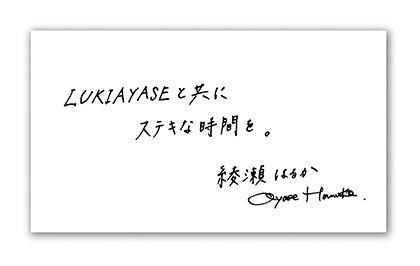 LUKIAYASEと共に
ステキな時間を。
綾瀬はるか
Ayase Haruka.